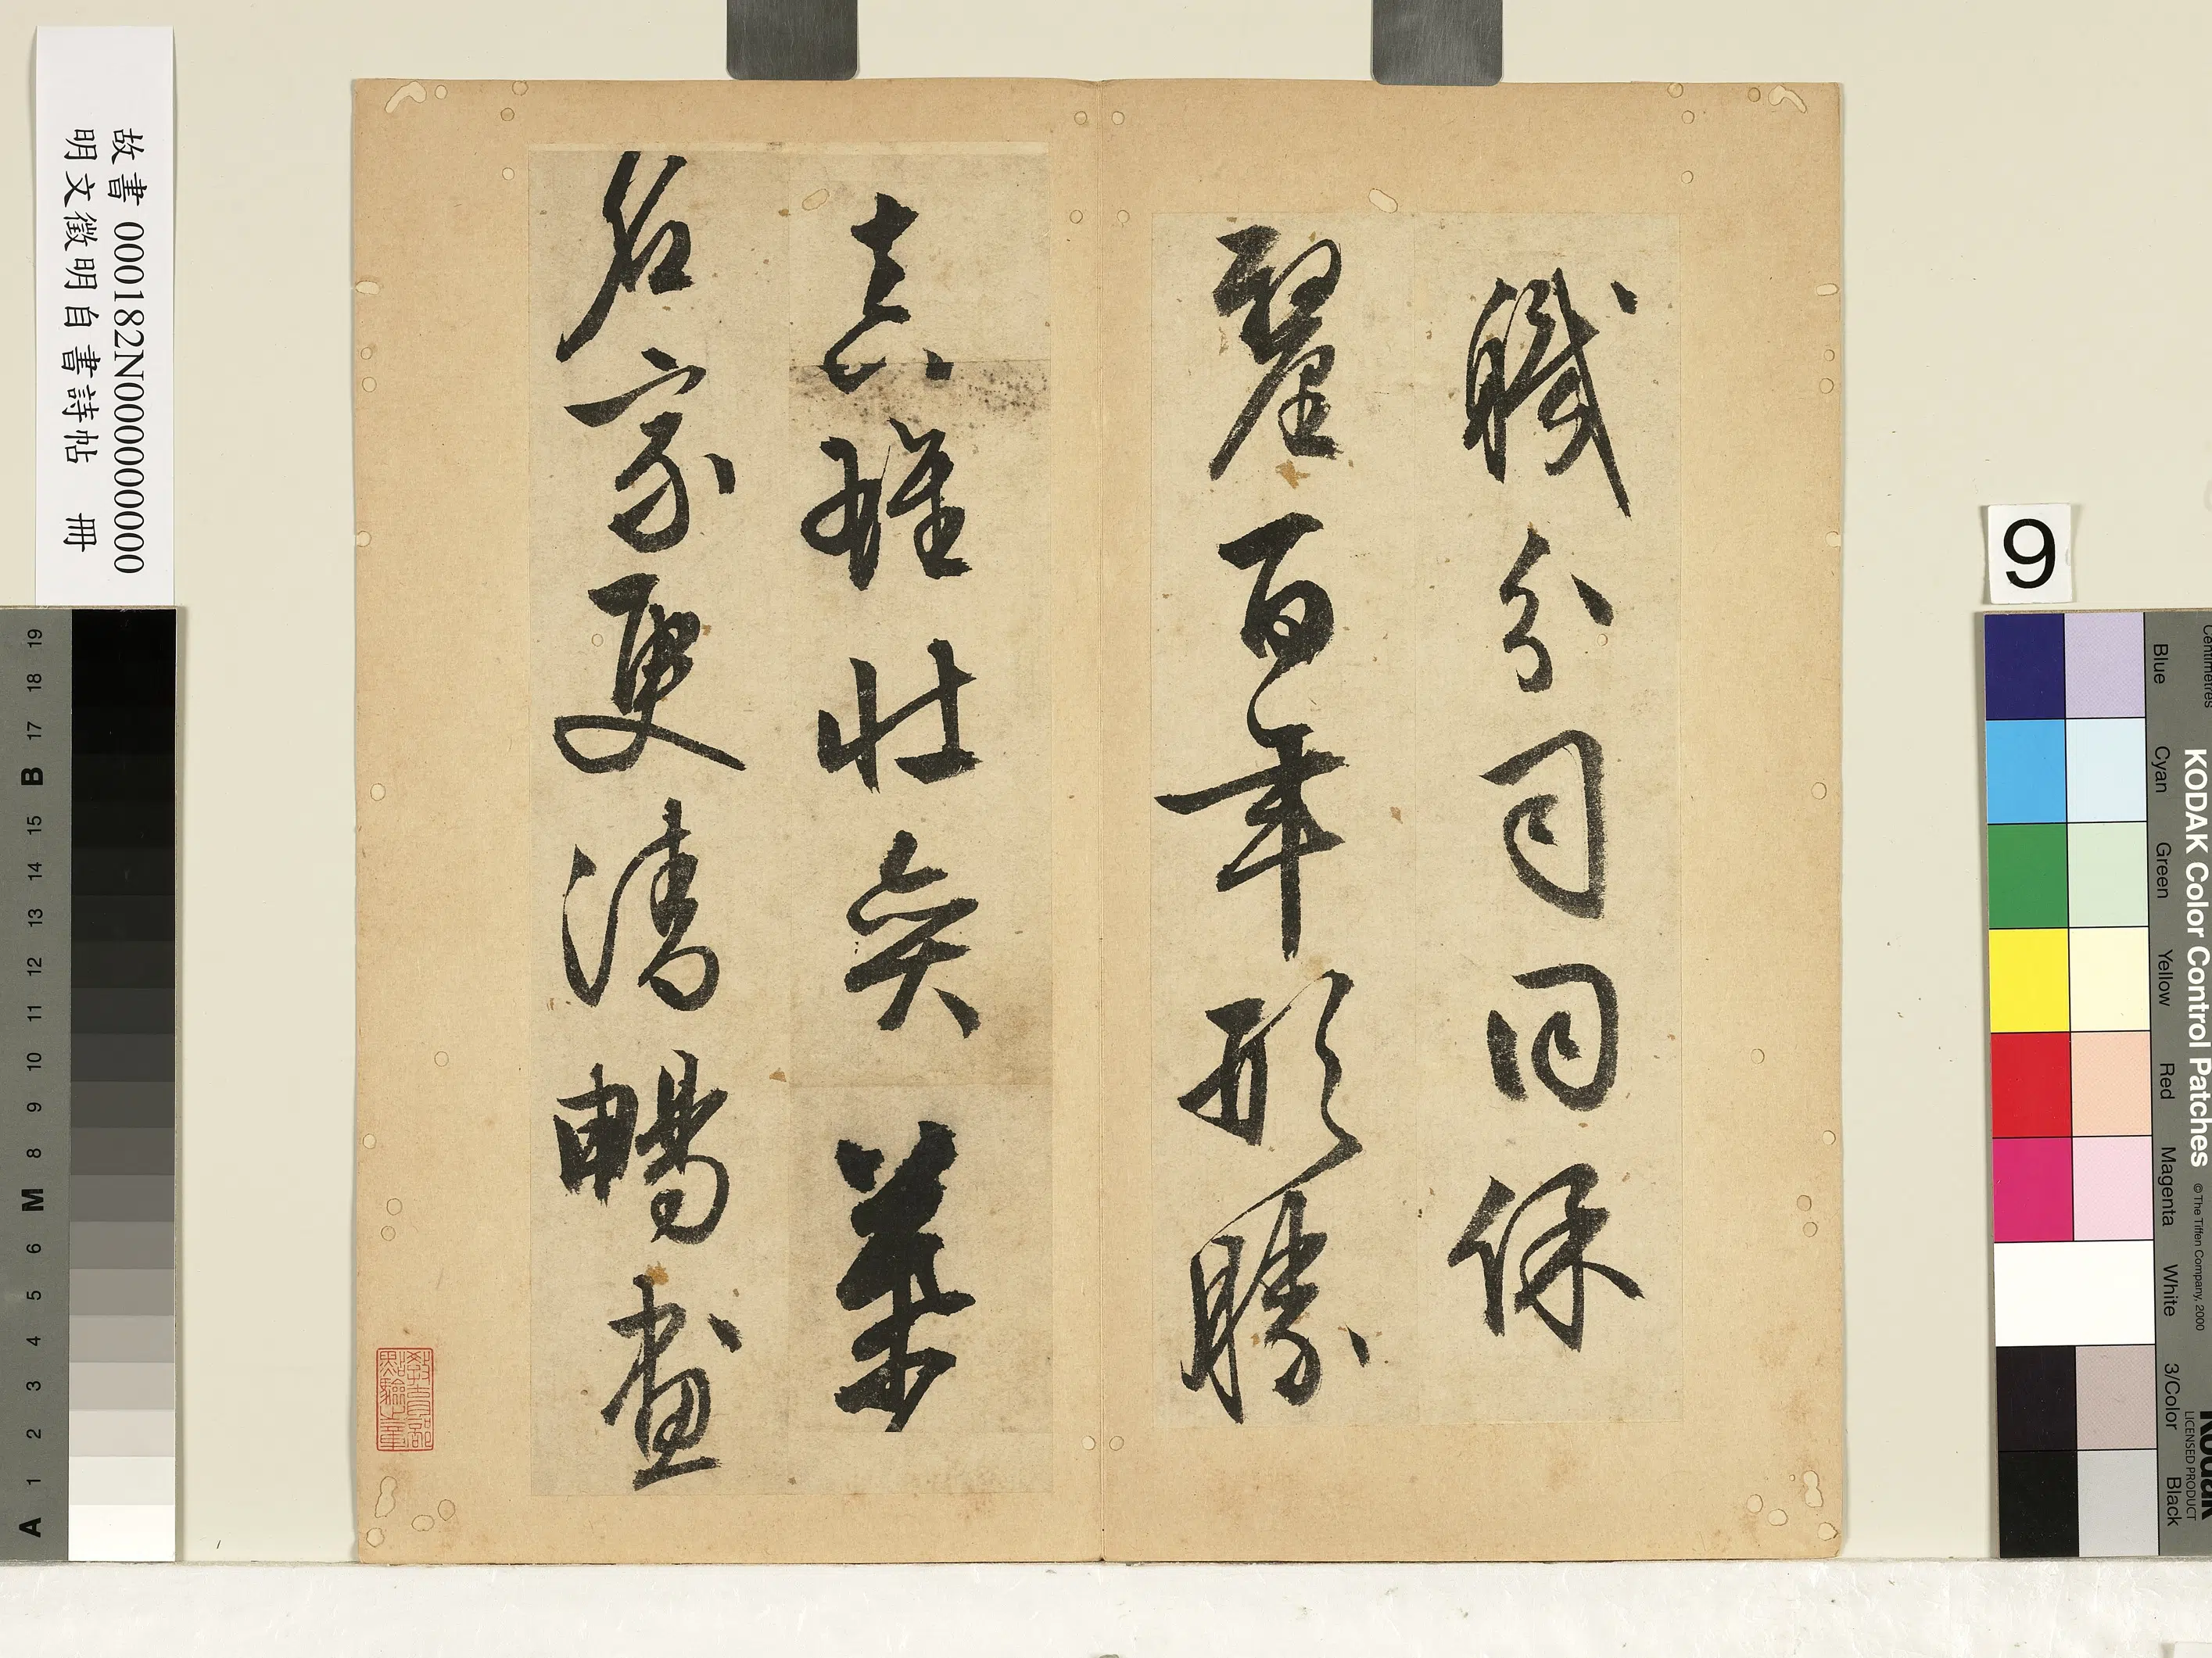 職分司同保
釐百年形勝
真雄壯奕葉
名家更清暢畫
教育部
點驗之章
故書 000182N000000000
明文徵明自書詩帖 冊
9
KODAK Color Control Patches
© The Tiffen Company, 2000
Kodak
LICENSED PRODUCT
Centimetres
Blue
Cyan
Green
Yellow
Red
Magenta
White
3/Color
Black
A 1 2 3 4 5 6 M 8 9 10 11 12 13 14 15 B 17 18 19